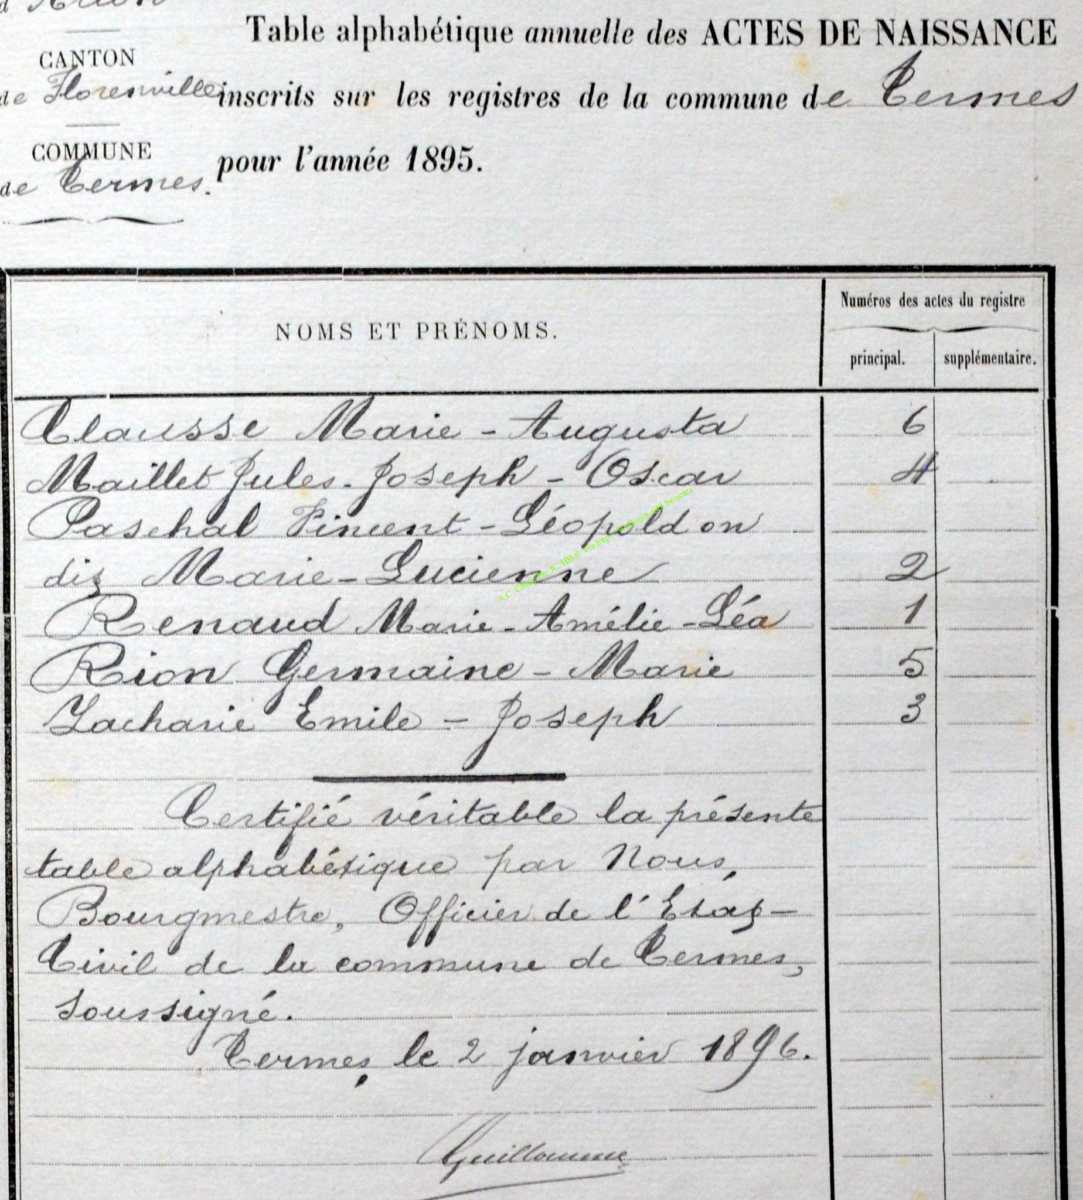 d'Arlon
CANTON
de Florenville
COMMUNE
de Termes.
Table alphabétique annuelle des ACTES DE NAISSANCE
inscrits sur les registres de la commune de Termes
pour l'année 1895.
NOMS ET PRÉNOMS.
Numéros des actes du registre
principal. supplémentaire.
Clausse Marie - Augusta 6
Maillet Jules - Joseph - Oscar 4
Paschal Vincent - Léopold on
dit Marie - Lucienne 2
Renaud Marie - Amélie - Léa 1
Rion Germaine - Marie 5
Zacharie Emile - Joseph 3
Certifié véritable la présente
table alphabétique par Nous,
Bourgmestre, Officier de l'Etat-
Civil de la commune de Termes,
soussigné.
Termes, le 2 janvier 1896.
Guillaume